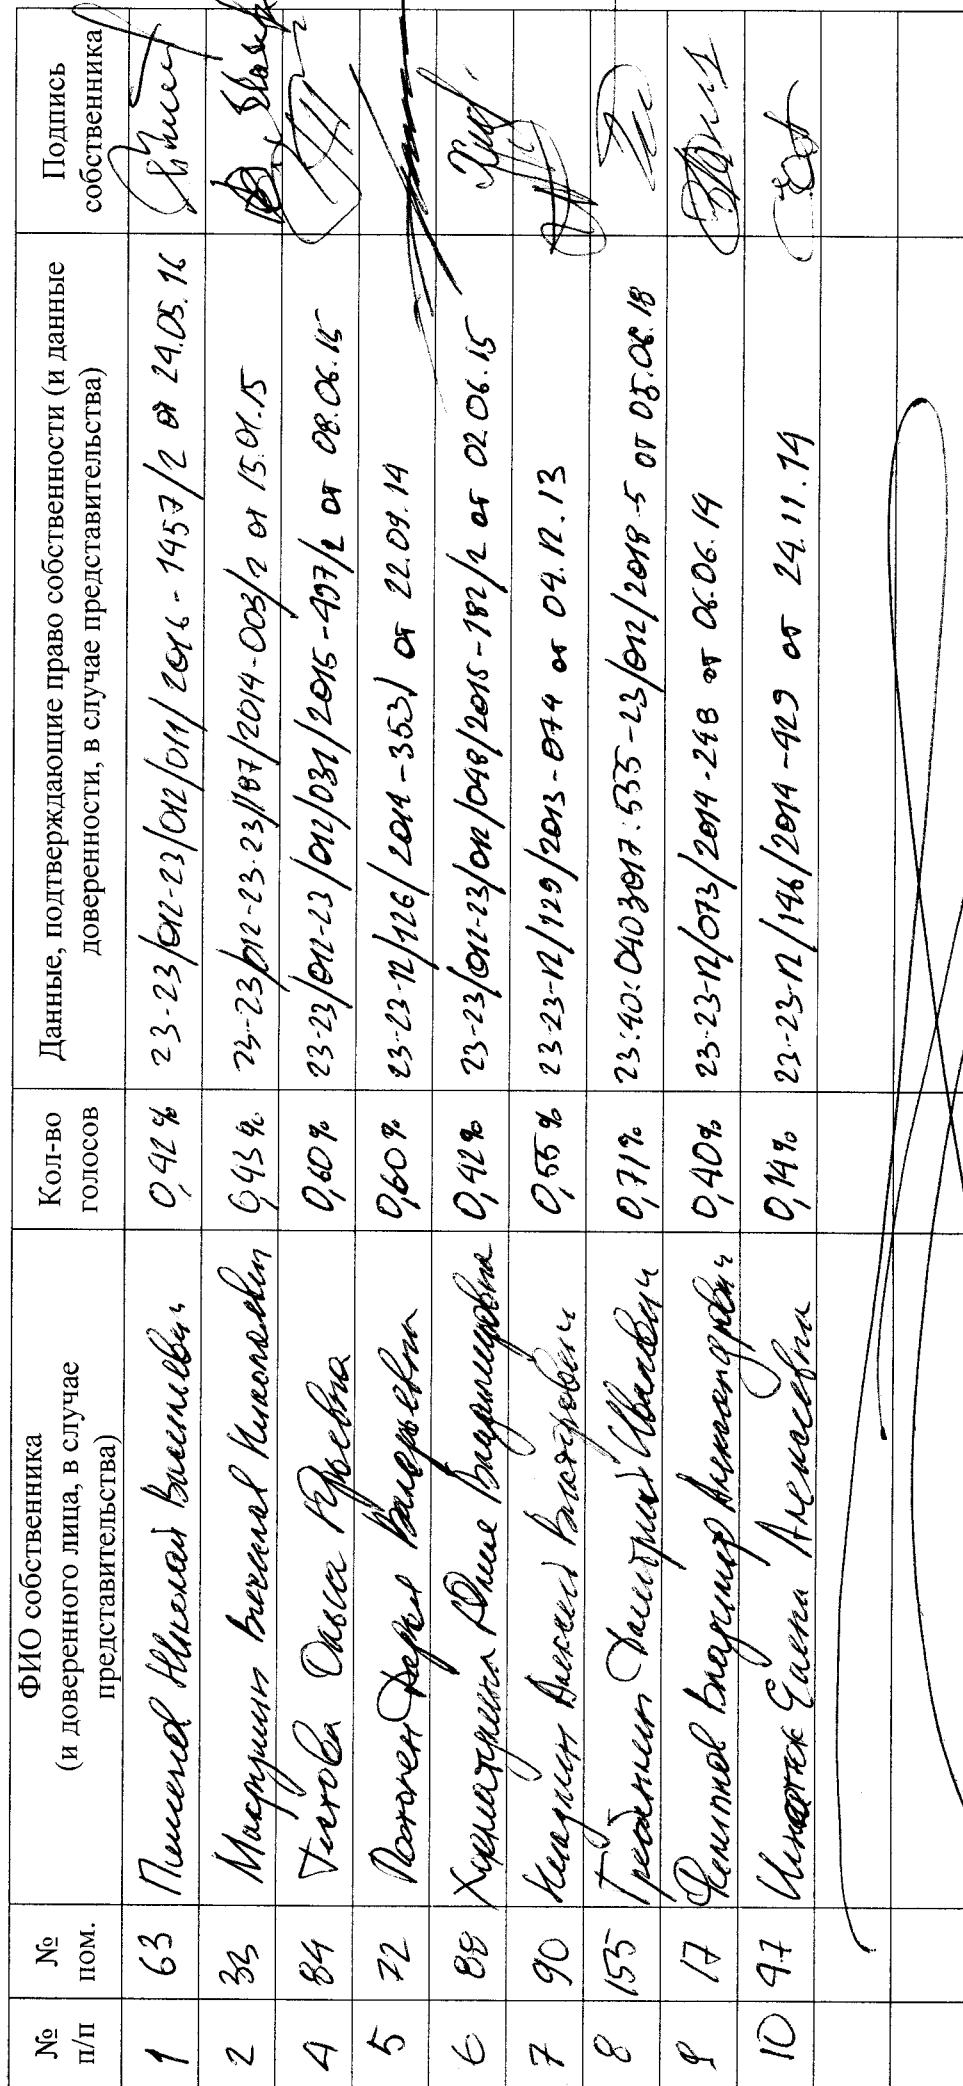 № п/п
№ пом.
ФИО собственника (и доверенного лица, в случае представительства)
Кол-во голосов
Данные, подтверждающие право собственности (и данные доверенности, в случае представительства)
Подпись собственника
1 63 Николай Васильевич 0,42% 23-23/012-23/012/011/2016-1457/2 от 24.05.16
2 33 Вячеслав Николаевич 0,43% 23-23/012-23-23/187/2014-003/2 от 15.01.15
4 84 Титова Ольга Юрьевна 0,60% 23-23/012-23/012/031/2015-497/2 от 08.06.15
5 72 Дарья Валерьевна 0,60% 23-23-12/126/2014-353 от 22.09.14
6 88 Юлия Владимировна 0,42% 23-23/012-23/012/048/2015-182/2 от 02.06.15
7 90 Алексей Викторович 0,55% 23-23-12/129/2013-074 от 04.12.13
8 155 Гребенкин Дмитрий Иванович 0,71% 23:40:0403017:535-23/012/2018-5 от 05.06.18
9 17 Филиппов Владимир Александрович 0,40% 23-23-12/073/2014-248 от 06.06.14
10 47 Игнатюк Елена Алексеевна 0,14% 23-23-12/146/2014-429 от 24.11.14